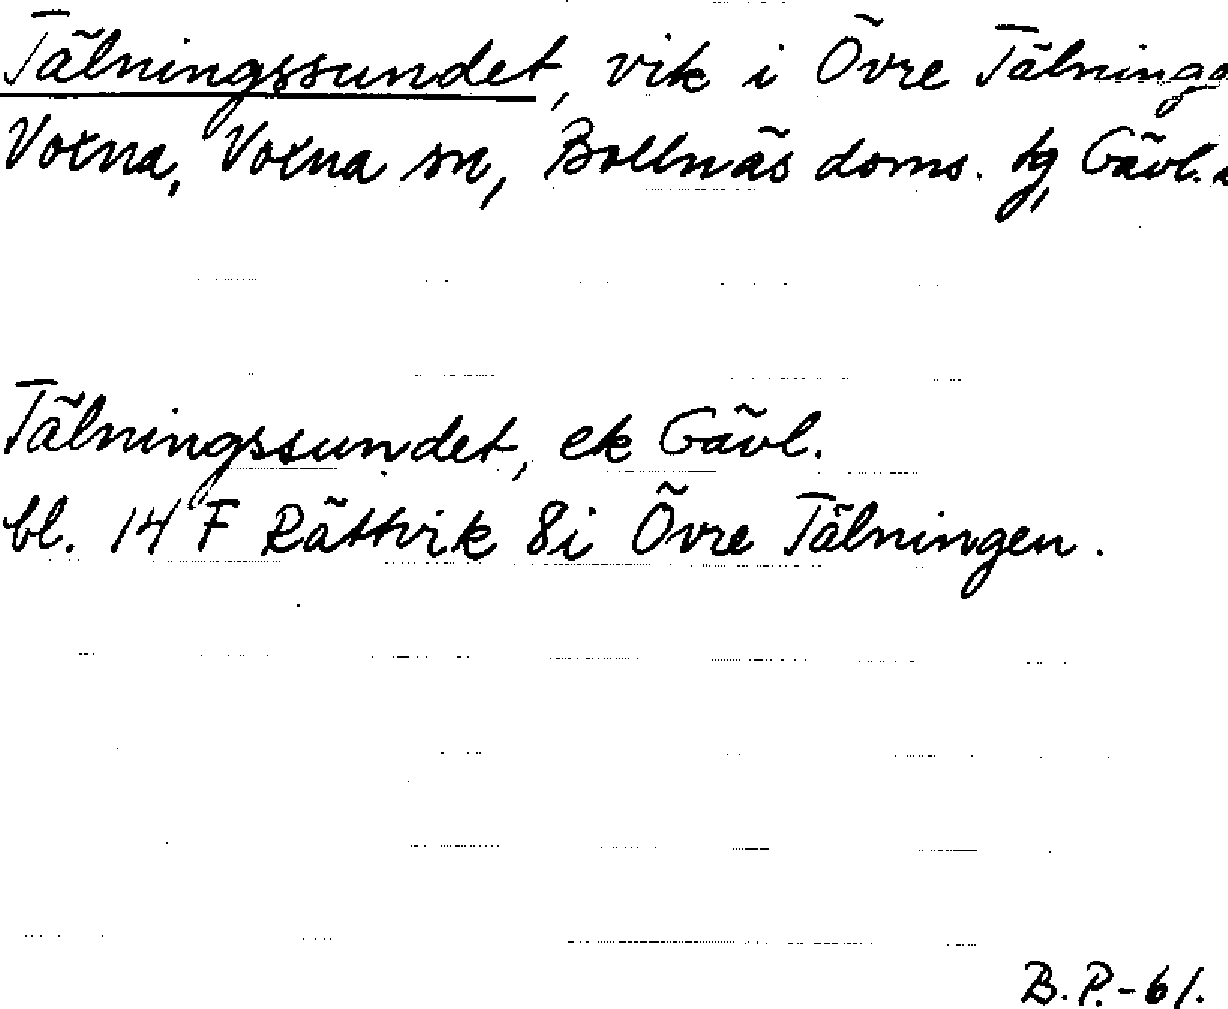 Tälningssundet, vik i Övre Tälninge
Voxna, Voxna sn, Bollnäs doms. tg, Gävl.
Tälningssundet, ek Gävl.
bl. 14 F Rättvik 8i Övre Tälningen.
B.P.-61.